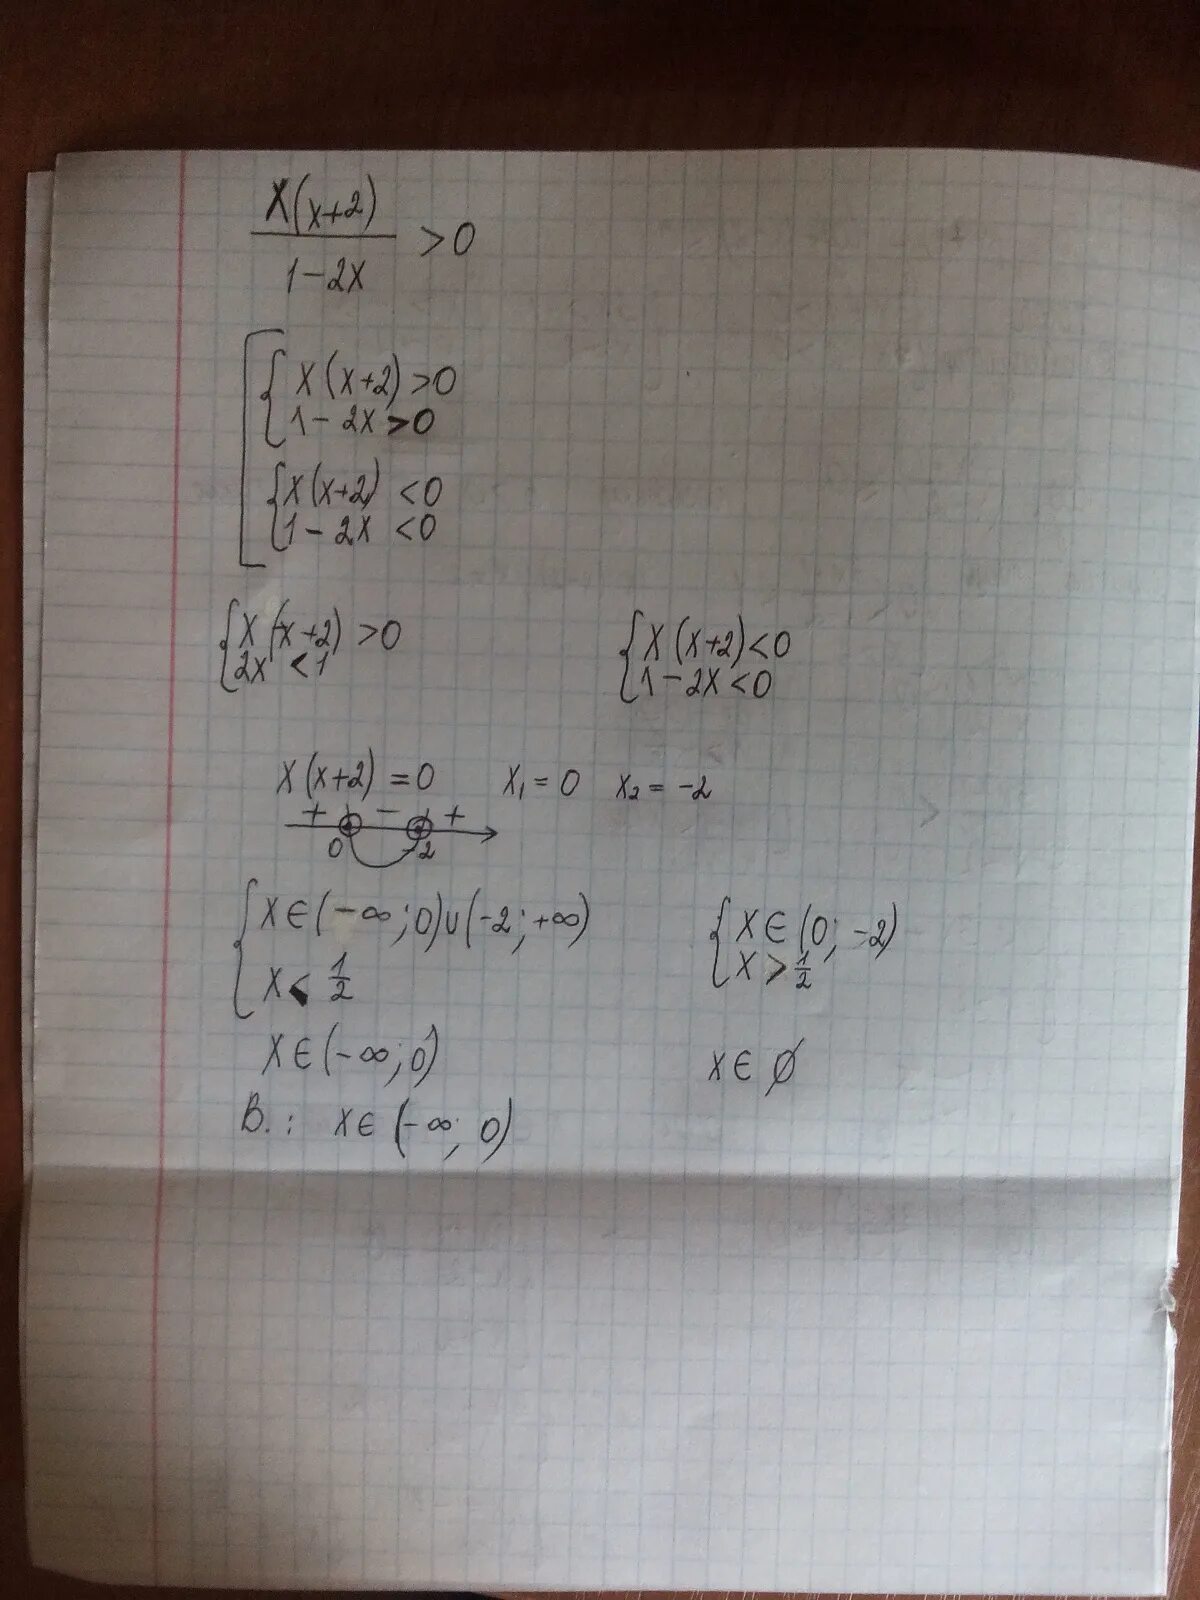 x(x+2)
───── >0
1-2x
x(x+2)>0
1-2x>0
x(x+2)<0
1-2x<0
x(x+2)>0
2x<1
x(x+2)<0
1-2x<0
x(x+2)=0 x₁=0 x₂=-2
+ - +
0 -2
x∈(-∞;0)∪(-2;+∞)
x<1/2
x∈(0;-2)
x>1/2
x∈(-∞;0)
x∈∅
В.: x∈(-∞;0)